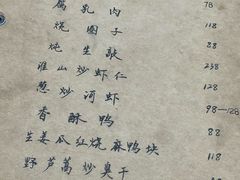 腐乳肉 78
烧圈子 118
炖生敲 88
淮山炒虾仁 238
葱炒河虾 128
香酥鸭 98—128
生姜瓜红烧麻鸭块 88
野芦蒿炒臭干 118
88